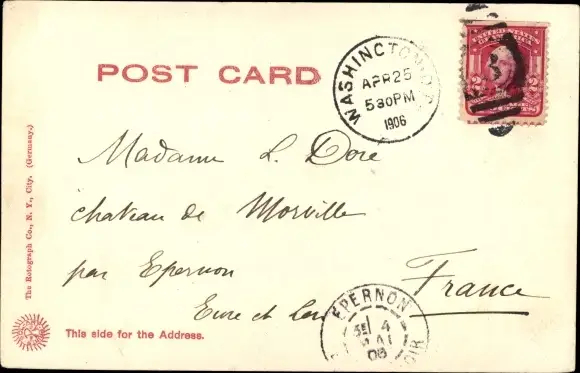 POST CARD
WASHINGTON, D.C.
APR 25
5 30 PM
1906
UNITED STATES
OF AMERICA
2 2
Madame L. Dore
chateau de Morville
par Epernon
Eure et Loir
France
EPERNON
4
MAI
06
The Rotograph Co., N. Y., City. (Germany.)
This side for the Address.